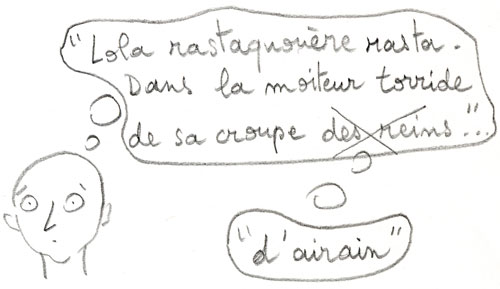 "Lola rastaquouère rasta.
Dans la moiteur torride
de sa croupe des reins..."
"d'airain"